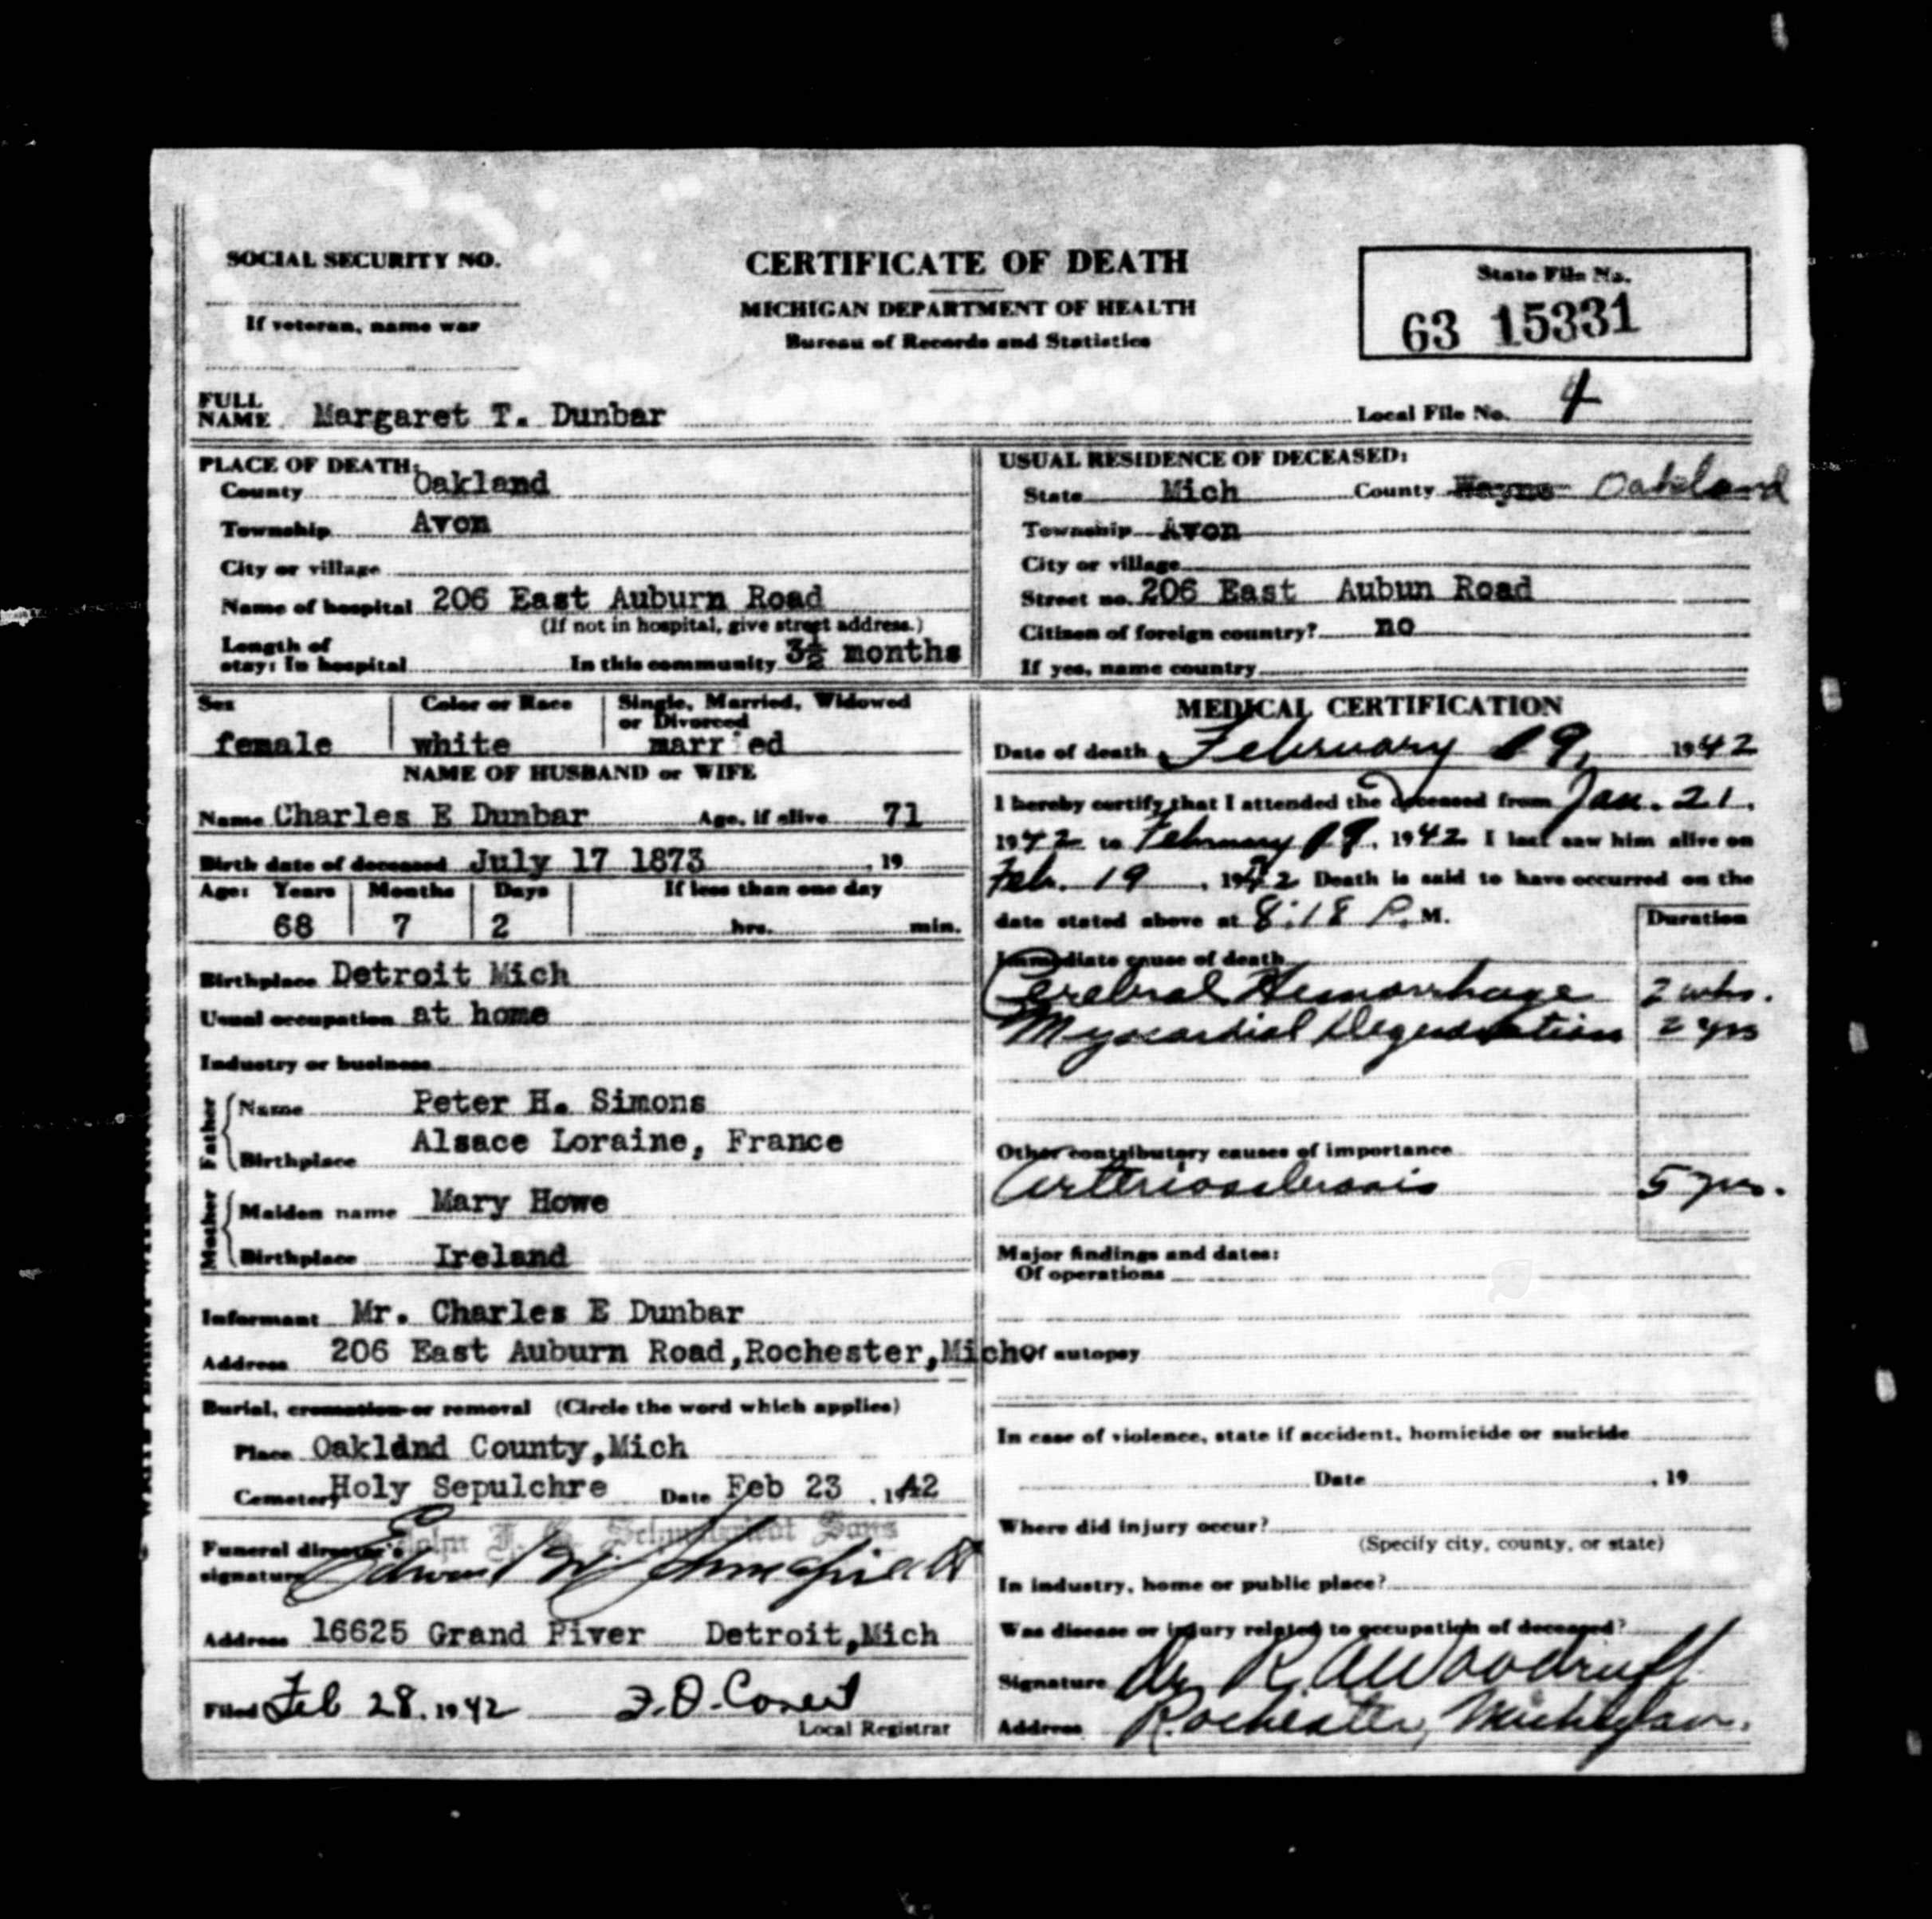 SOCIAL SECURITY NO.
If veteran, name war
CERTIFICATE OF DEATH
MICHIGAN DEPARTMENT OF HEALTH
Bureau of Records and Statistics
State File No.
63 15331
FULL NAME Margaret T. Dunbar
Local File No. 4
PLACE OF DEATH:
County Oakland
Township Avon
City or village
Name of hospital 206 East Auburn Road
(If not in hospital, give street address.)
Length of stay: In hospital In this community 3½ months
USUAL RESIDENCE OF DECEASED:
State Mich County Wayne Oakland
Township Avon
City or village
Street no. 206 East Aubun Road
Citizen of foreign country? no
If yes, name country
Sex Color or Race Single, Married, Widowed or Divorced
female white marr ed
NAME OF HUSBAND or WIFE
Name Charles E Dunbar Age, if alive 71
Birth date of deceased July 17 1873 , 19
Age: Years Months Days If less than one day
68 7 2 hrs. min.
Birthplace Detroit Mich
Usual occupation at home
Industry or business
Father
Name Peter H. Simons
Birthplace Alsace Loraine, France
Mother
Maiden name Mary Howe
Birthplace Ireland
Informant Mr. Charles E Dunbar
Address 206 East Auburn Road,Rochester,Mich
Burial, cremation or removal (Circle the word which applies)
Place Oakldnd County,Mich
Cemetery Holy Sepulchre Date Feb 23 , 1942
Funeral director's signature
Address 16625 Grand River Detroit,Mich
Filed Feb 28, 1942
Local Registrar
MEDICAL CERTIFICATION
Date of death February 19, 1942
I hereby certify that I attended the deceased from Jan. 21,
1942 to February 19, 1942 I last saw him alive on
Feb. 19, 1942 Death is said to have occurred on the
date stated above at 8:18 P. M.
Duration
Immediate cause of death
Cerebral Hemorrhage 2 wks.
Myocardial Degeneration 2 yrs
Other contributory causes of importance
Arteriosclerosis 5 yrs.
Major findings and dates:
Of operations
Of autopsy
In case of violence, state if accident, homicide or suicide
Date , 19
Where did injury occur?
(Specify city, county, or state)
In industry, home or public place?
Was disease or injury related to occupation of deceased?
Signature Dr R.A. Woodruff
Address Rochester, Michigan.